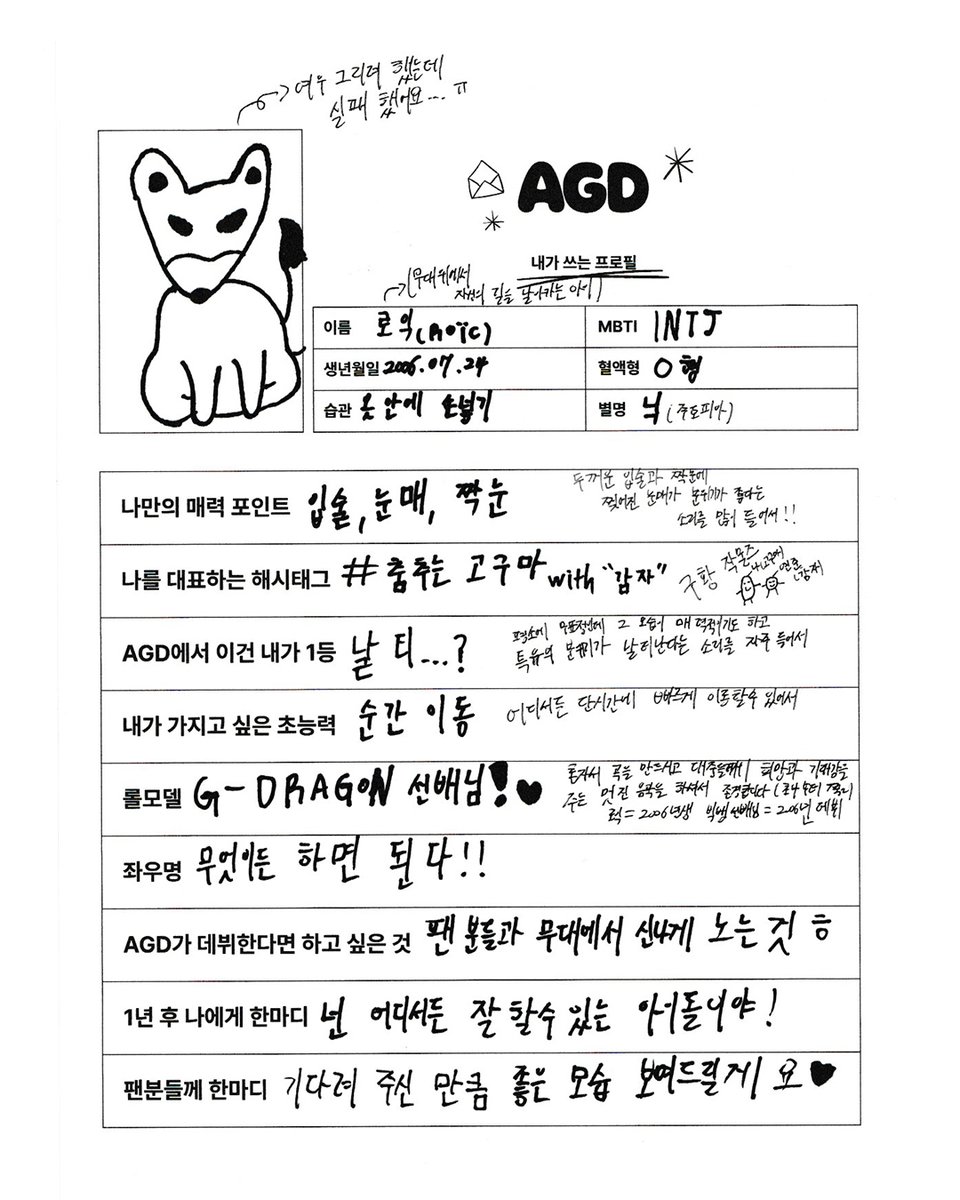 여우 그리려 했는데
실패 했어요... ㅠ
AGD
내가 쓰는 프로필
(무대위에서
자신의 길을 날아가는 아이)
이름 로익(Roïc)
MBTI INTJ
생년월일 2006.07.24
혈액형 O형
습관 옷 안에 손넣기
별명 닉(주토피아)
나만의 매력 포인트 입술, 눈매, 짝눈
두꺼운 입술과 짝눈에
찢어진 눈매가 분위기가 좋다는
소리를 많이 들어서!!
나를 대표하는 해시태그 #춤추는 고구마 with "감자"
구황 작물즈
AGD에서 이건 내가 1등 날티...?
평소에 무표정인데 그 모습이 매력적이기도 하고
특유의 분위기가 날티난다는 소리를 자주 들어서
내가 가지고 싶은 초능력 순간 이동
어디서든 단시간에 빠르게 이동할수 있어서
롤모델 G-DRAGON 선배님!♥
혼자서 곡을 만드시고 대중들에게 희망과 기대감을
주는 멋진 음악을 하셔서 존경합니다
로익=2006년생 빅뱅선배님=2006년 데뷔
좌우명 무엇이든 하면 된다!!
AGD가 데뷔한다면 하고 싶은 것 팬분들과 무대에서 신나게 노는 것 ㅎ
1년 후 나에게 한마디 넌 어디서든 잘 할수 있는 아이돌이야!
팬분들께 한마디 기다려 주신 만큼 좋은 모습 보여드릴게요♥